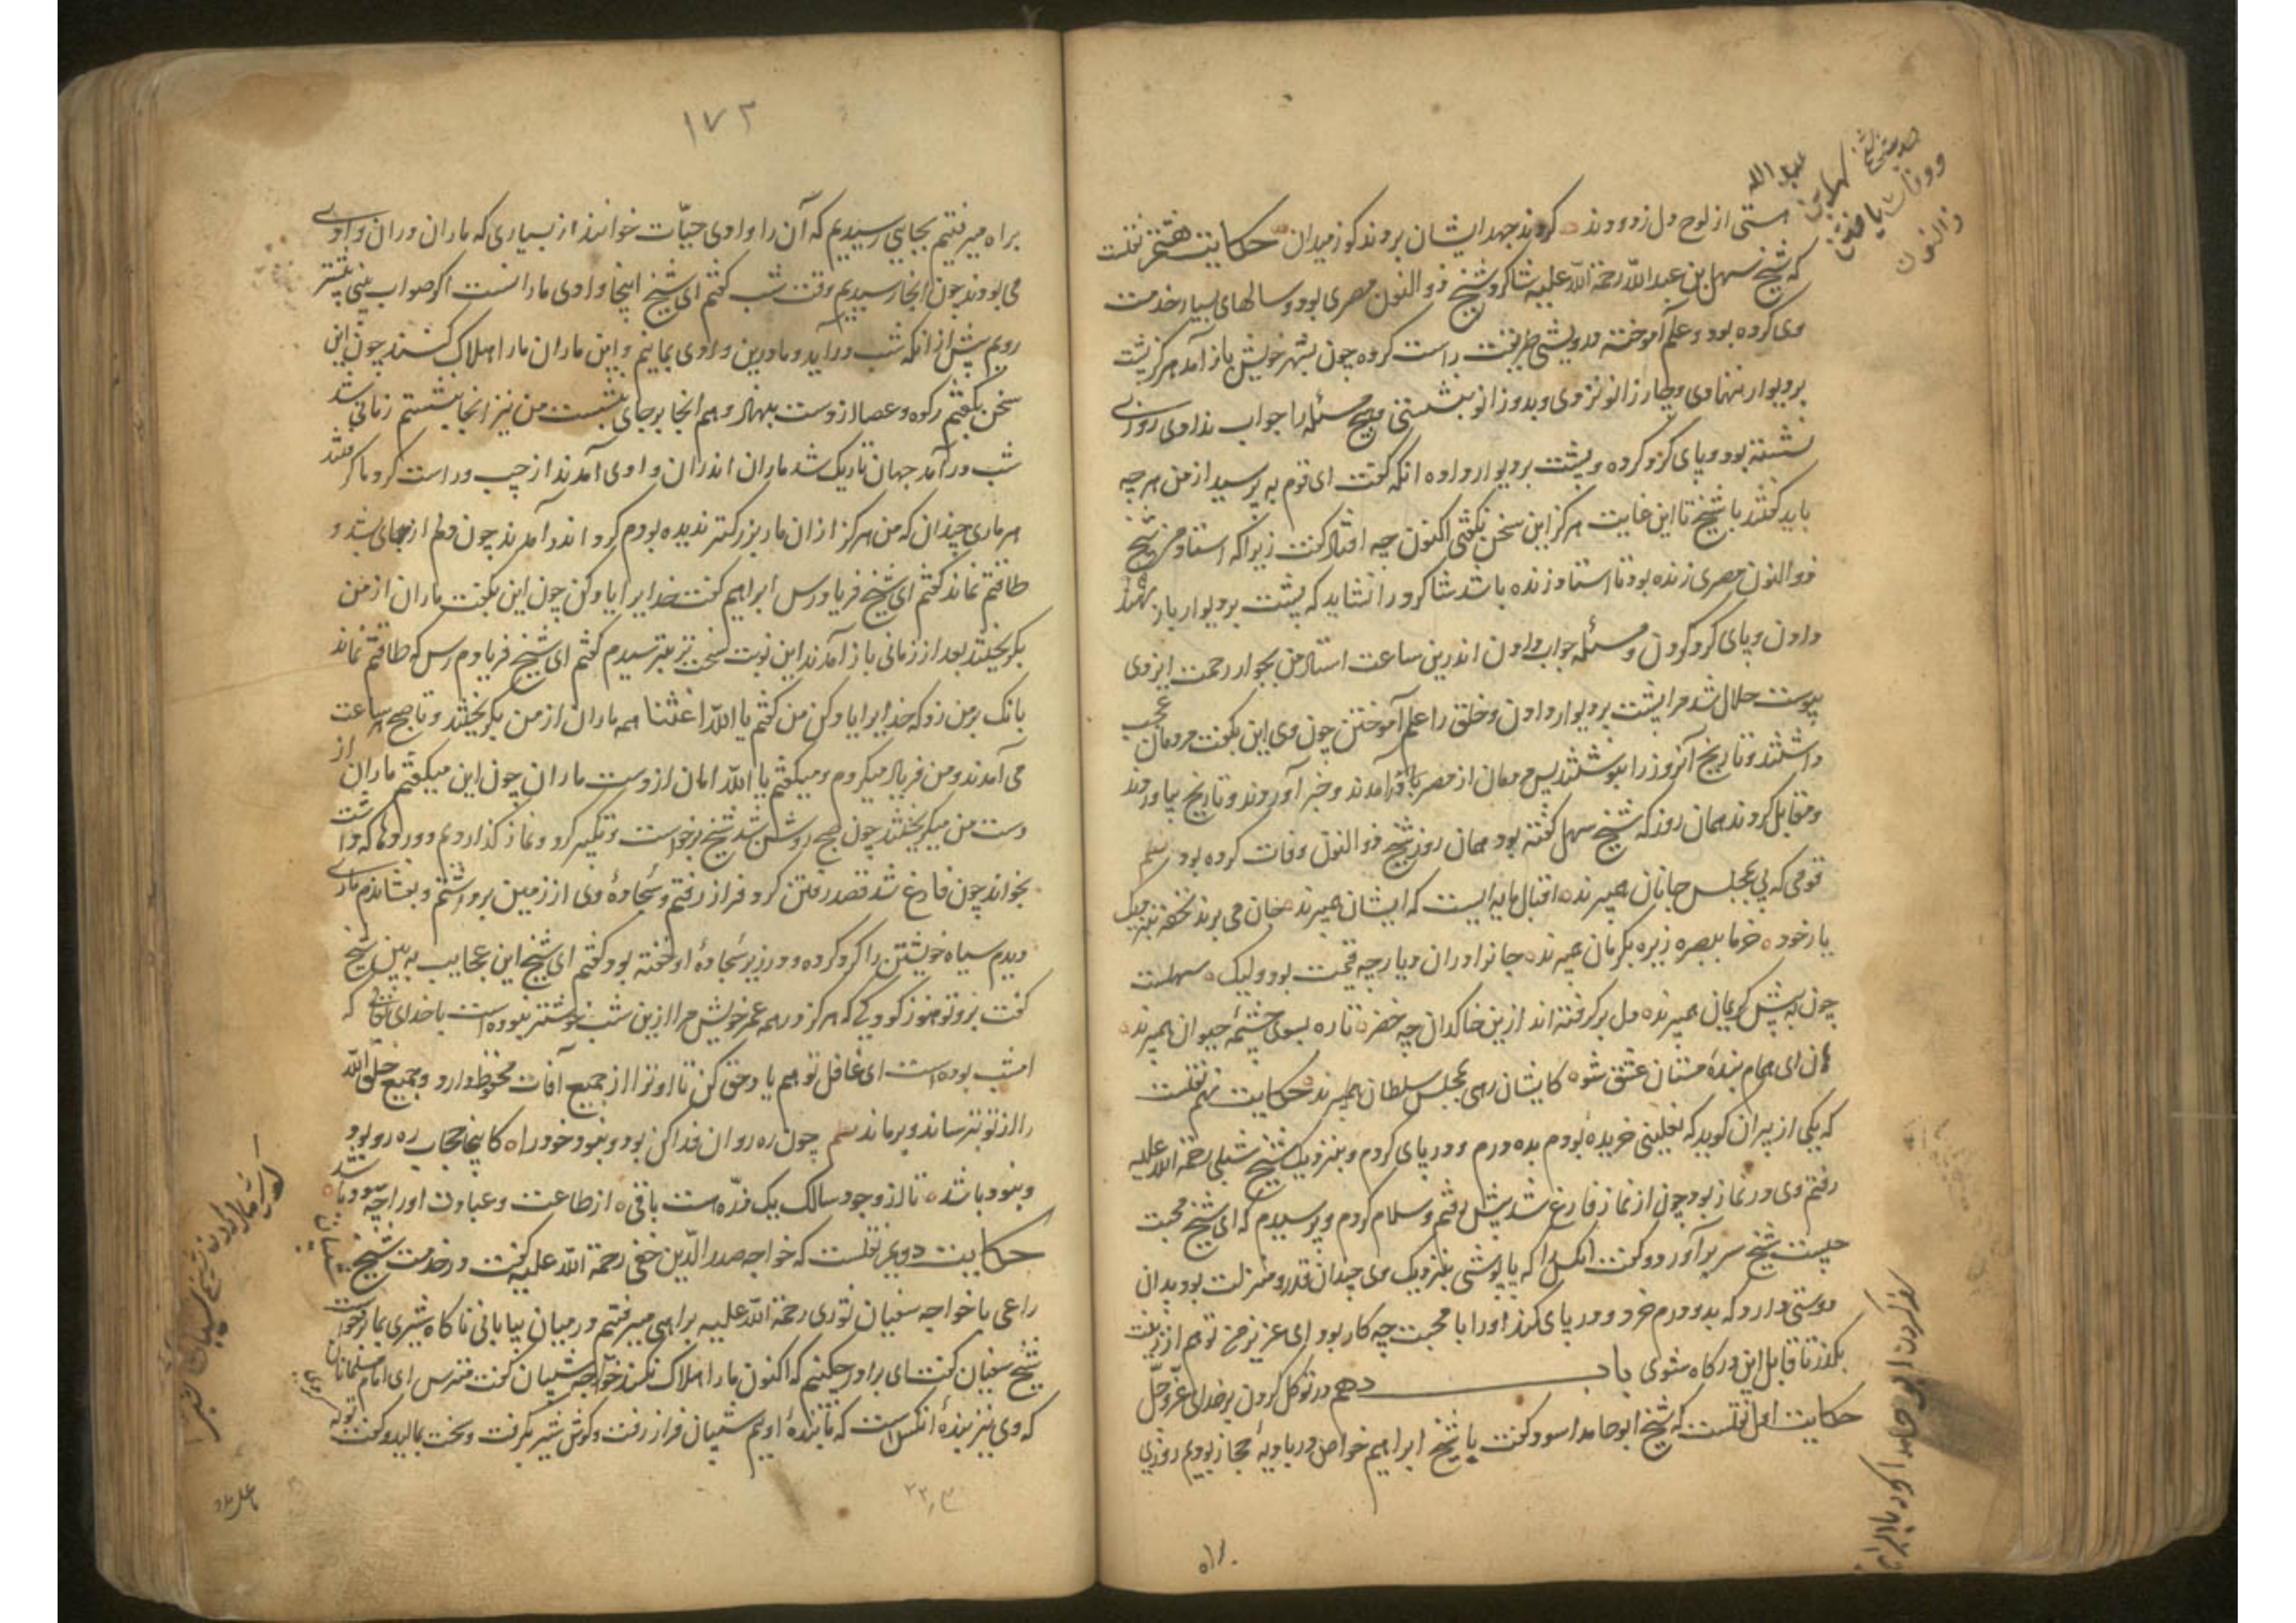 هستی از لوح دل زدودند کردند جهد ایشان بردند گو ز میدان حکایت هشتم نقلست
که شیخ سهل بن عبدالله رحمة الله علیه شاگرد شیخ ذوالنون مصری بود و سالهای بسیار خدمت
وی کرده بود و علم آموخته و درویشی طریقت راست کرده چون بشهر خویش باز آمد هرگز پشت
بر دیوار ننهادی و چهار زانو نزدی و بدو زانو بنشستی و هیچ مسئله را جواب ندادی روزی
نشسته بود و پای گرد کرده و پشت بر دیوار داده انگه گفت ای قوم به پرسید از من هر چه
باید گفتند یا شیخ تا این غایت هرگز این سخن نگفتی اکنون چه افتاد گفت زیرا که استاد من شیخ
ذوالنون مصری زنده بود تا استاد زنده باشد شاگرد را نشاید که پشت بر دیوار باز
دادن و پای گرد کردن و مسئله جواب دادن اندرین ساعت استاد من بجوار رحمت ایزدی
پیوست حلال شد مرا پشت بر دیوار دادن و خلق را علم آموختن چون وی این بگفت مردمان عجب
داشتند و تاریخ آنروز را بنوشتند پس مردمان از مصر باز آمدند و خبر آوردند و تاریخ بیاوردند
و مقابل کردند همان روز که شیخ سهل گفته بود همان روز شیخ ذوالنون وفات کرده بود نظم
قومی که پی مجلس جانان میرند اقبال مایه ایست که ایشان میرند جان می برند تحفه بنزدیک
یار خود خرما ببصره زیره بکرمان میرند جانرا دران دیار چه قیمت بود ولیک سهلست
چون به پیش کریمان میرند دل برگرفته اند ازین خاکدان چه خضر تا ره بسوی چشمه حیوان میرند
هان ای همام بنده مستان عشق شو کایشان رهی بمجلس سلطان میرند حکایت نهم نقلست
که یکی از پیران گوید که نعلینی خریده بودم بده درم و در پای کردم و بنزدیک شیخ شبلی رحمة الله علیه
رفتم وی در نماز بود چون از نماز فارغ شد پیش رفتم و سلام کردم و پرسیدم که ای شیخ محبت
چیست شیخ سر بر آورد و گفت انکس را که پاپوشی بنزدیک وی چندان قدر و منزلت بود بدان
دوستی دارد که بده درم خرد و در پای کند او را با محبت چه کار بود ای عزیز من تو هم از زینت
بگذر تا قابل این درگاه شوی باب دهم در توکل کردن بر خدای عز و جل
حکایت اول نقلست که شیخ ابو حامد اسود گفت با شیخ ابراهیم خواص در بادیه حجاز بودیم روزی
براه
۱۷۲
براه میرفتیم بجایی رسیدیم که آن را وادی حیّات خوانند از بسیاری که ماران دران وادی
می بودند چون انجا رسیدیم وقت شب گفتم ای شیخ اینجا وادی مارانست اگر صواب بینی پیشتر
رویم پیش از انکه شب درآید و ما درین وادی بمانیم و این ماران ما را هلاک کنند چون این
سخن بگفتم رکوه و عصا از دست بنهاد و هم انجا بر جای بنشست من نیز انجا بنشستم زمانی شد
شب درآمد جهان تاریک شد ماران اندران وادی آمدند از چپ و راست گرد ما گرفتند
هر ماری چندان که من هرگز از ان مار بزرگتر ندیده بودم گرد اندر آمدند چون دلم از جای بشد و
طاقتم نماند گفتم ای شیخ فریاد رس ابراهیم گفت خدایرا یاد کن چون این بگفت ماران از من
بگریختند بعد از زمانی باز آمدند این نوبت سخت تر بترسیدم گفتم ای شیخ فریادم رس که طاقتم نماند
بانک بر من زد که خدایرا یاد کن من گفتم یا الله اغثنا همه ماران از من بگریختند و تا صبح هر ساعت
می آمدند و من فریاد میکردم و میگفتم یا الله امان از دست ماران چون این میگفتم ماران از
دست من میگریختند چون صبح روشن شد شیخ برخواست و تکبیر کرد و نماز گذاردیم و وردها که داشت
بخواند چون فارغ شد قصد رفتن کرد فراز رفتم و سجاده وی از زمین برداشتم و بفشاندم ماری
دیدم سیاه خویشتن را گرد کرده و در زیر سجاده او خفته بود گفتم ای شیخ این عجایب به بین شیخ
گفت برو تو هنوز کودکی که هرگز در همه عمر خویش مرا ازین شب خوشتر نبوده است با خدای تعالی که
امشب بوده است ای غافل تو هم یاد حق کن تا او ترا از جمیع آفات محفوظ دارد و جمیع خلق الله
را از تو بترساند و برماند نظم چون ره روان فدا کن بود و نبود خود را کاینجا حجاب ره رو بود
و نبود باشد تا از وجود سالک یک ذره هست باقی از طاعت و عبادت او را چه سود باشد
حکایت دویم نقلست که خواجه صدرالدین خفی رحمة الله علیه گفت در خدمت شیخ شیبان
راعی با خواجه سفیان ثوری رحمة الله علیه براهی میرفتم در میان بیابانی ناگاه شیری بما برخواست
شیخ سفیان گفت ای برادر چکنیم که اکنون ما را هلاک نکند خواجه شیبان گفت مترس ای امام مسلمانان
که وی نیز بنده انکس است که ما بنده اویم شیبان فراز رفت و گوش شیر بگرفت و سخت بمالید و گفت تو که